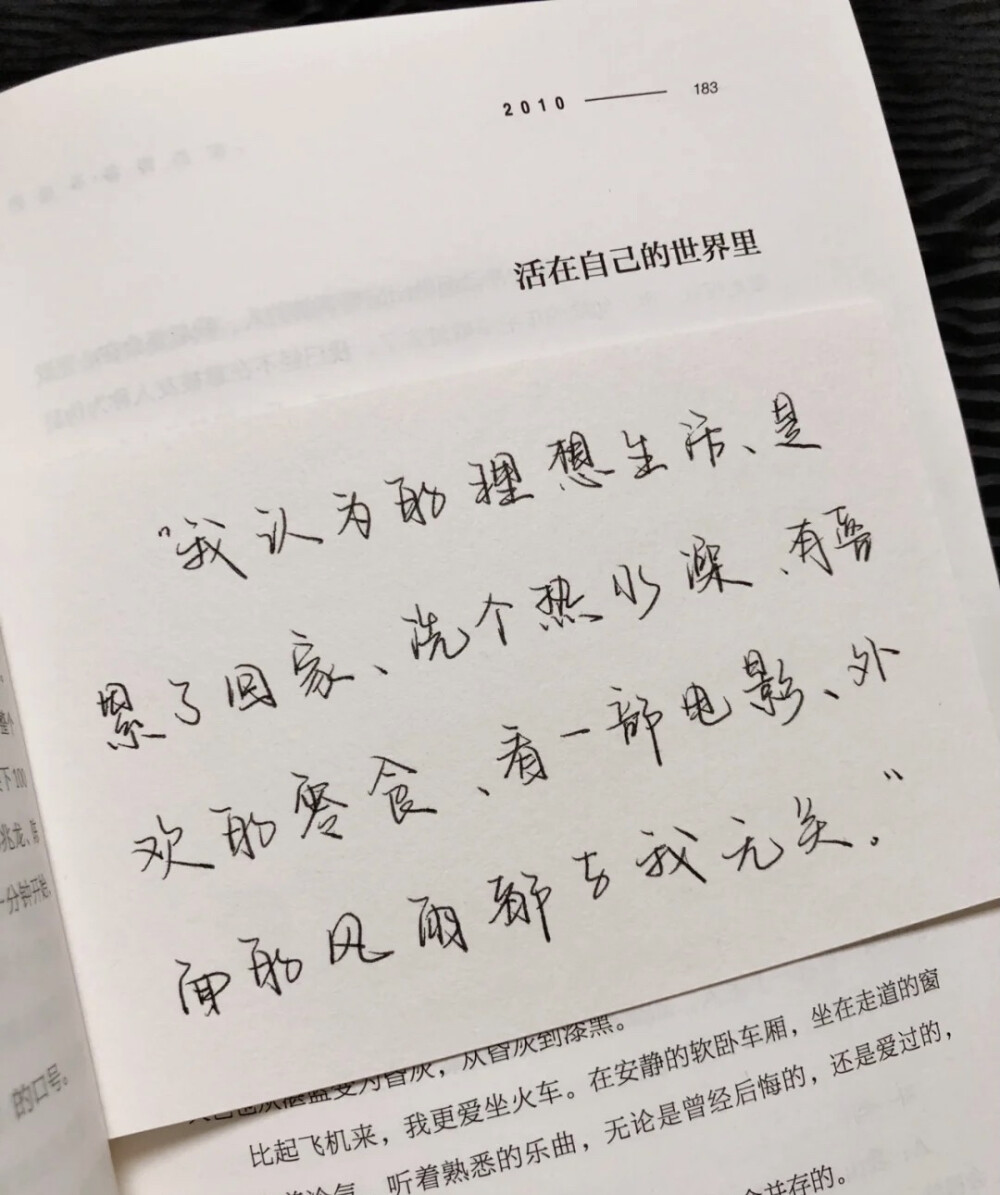 2010 183
活在自己的世界里
“我认为的理想生活、是
累了回家、洗个热水澡、有喜
欢的零食、看一部电影、外
面的风雨都与我无关。”
整个
下100
兆龙、
一分钟开始,
的口号。
变为昏灰,从昏灰到漆黑。
比起飞机来,我更爱坐火车。在安静的软卧车厢,坐在走道的窗
听着熟悉的乐曲,无论是曾经后悔的,还是爱过的,
并存的。